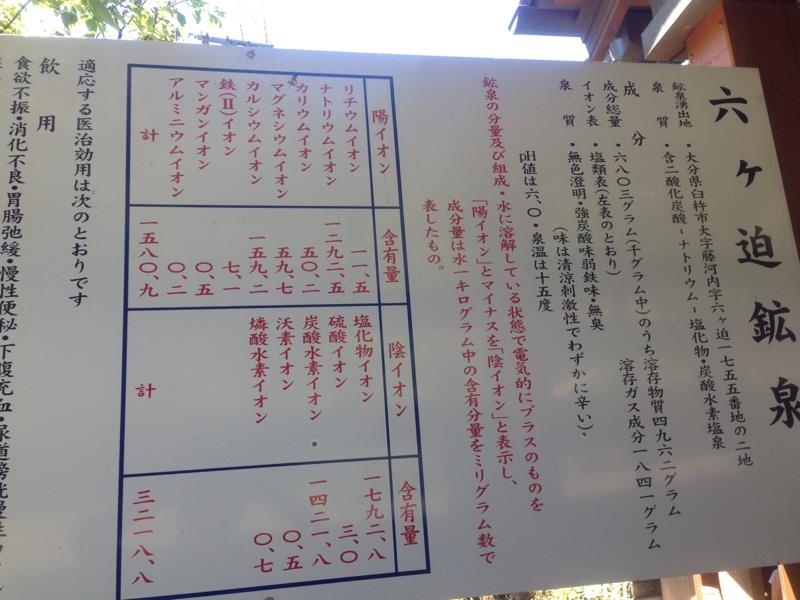 六ヶ迫鉱泉
鉱泉湧出地・大分県臼杵市大字藤河内字六ヶ迫一七五五番地の二地
泉質・含二酸化炭酸ーナトリウムー塩化物・炭酸水素塩泉
成分
成分総量・六八〇三グラム(千グラム中)のうち溶存物質四九六二グラム
溶存ガス成分一八四一グラム
イオン表・塩類表(左表のとおり)
泉質・無色澄明・強炭酸味弱鉄味・無臭
(味は清涼刺激性でわずかに辛い)、
pH値は六、〇・泉温は十五度
鉱泉の分量及び組成・水に溶解している状態で電気的にプラスのものを
「陽イオン」とマイナスを「陰イオン」と表示し、
成分量は水一キログラム中の含有分量をミリグラム数で
表したもの。
陽イオン 含有量 陰イオン 含有量
リチウムイオン 一一、五 塩化物イオン 一七九二、八
ナトリウムイオン 一二九二、五 硫酸イオン 三、〇
カリウムイオン 五〇、二 炭酸水素イオン 一四二一、八
マグネシウムイオン 五九、七 沃素イオン 〇、五
カルシウムイオン 一五九、二 燐酸水素イオン 〇、七
鉄(Ⅱ)イオン 七、一
マンガンイオン 〇、五
アルミニウムイオン 〇、二
計 一五八〇、九 計 三二一八、八
適応する医治効用は次のとおりです
飲用
食欲不振・消化不良・胃腸弛緩・慢性便秘・下腹充血・尿道膀胱慢性